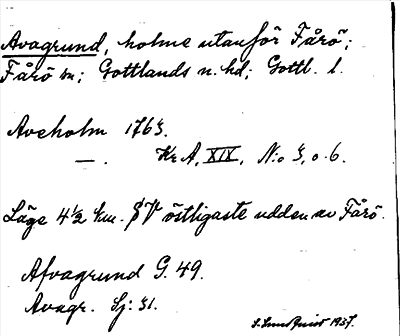 Avagrund, holme utanför Fårö;
Fårö sn; Gottlands n. hd; Gottl. l.
Aveholm 1763.
— . Kr A, XIX, N:o 3, o. 6.
Läge 4½ km. SV östligaste udden av Fårö.
Afvagrund G. 49.
Avagr. Sj: 31.
1937.